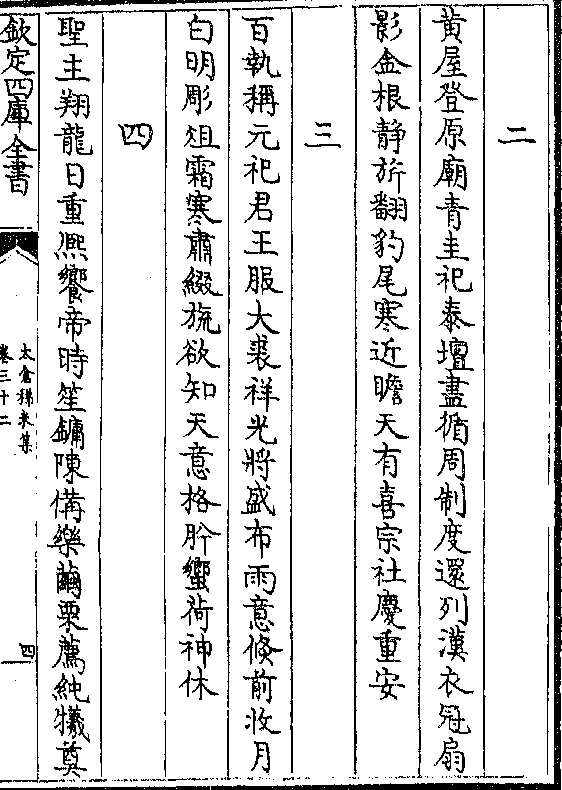 二
黄屋登原廟青圭祀泰壇盡循周制度還列漢衣冠扇
影金根静旂翻豹尾寒近瞻天有喜宗社慶重安
三
百執稱元祀君王服大裘祥光將盛布雨意倐前收月
白明彫俎霜寒肅綴旒欲知天意格肸蠁荷神休
四
聖主翔龍日重熈饗帝時笙鏞陳備樂繭栗薦純犧奠
欽定四庫全書
太倉稊米集
卷三十二
四